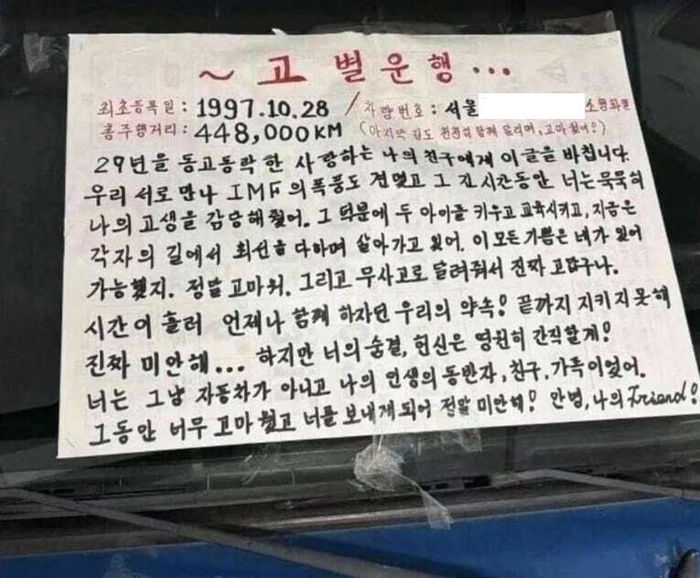 ~ 고 별 운 행 ...
최초등록일 : 1997.10.28 / 차량번호 : 서울 소형화물
총주행거리 : 448,000KM (마지막 길도 천천히 함께 달리며, 고마웠어?)
29년을 동고동락한 사랑하는 나의 친구에게 이 글을 바칩니다.
우리 서로 만나 IMF의 폭풍도 견뎠고 그 긴 시간동안 너는 묵묵히
나의 고생을 감당해줬어. 그 덕분에 두 아이를 키우고 교육시키고, 지금은
각자의 길에서 최선을 다하며 살아가고 있어. 이 모든 기쁨은 네가 있어
가능했지. 정말 고마워. 그리고 무사고로 달려줘서 진짜 고맙구나.
시간이 흘러 언제나 함께 하자던 우리의 약속! 끝까지 지키지 못해
진짜 미안해... 하지만 너의 숨결, 헌신은 영원히 간직할게!
너는 그냥 자동차가 아니고 나의 인생의 동반자, 친구, 가족이었어.
그동안 너무 고마웠고 너를 보내게 되어 정말 미안해! 안녕, 나의 Friend!